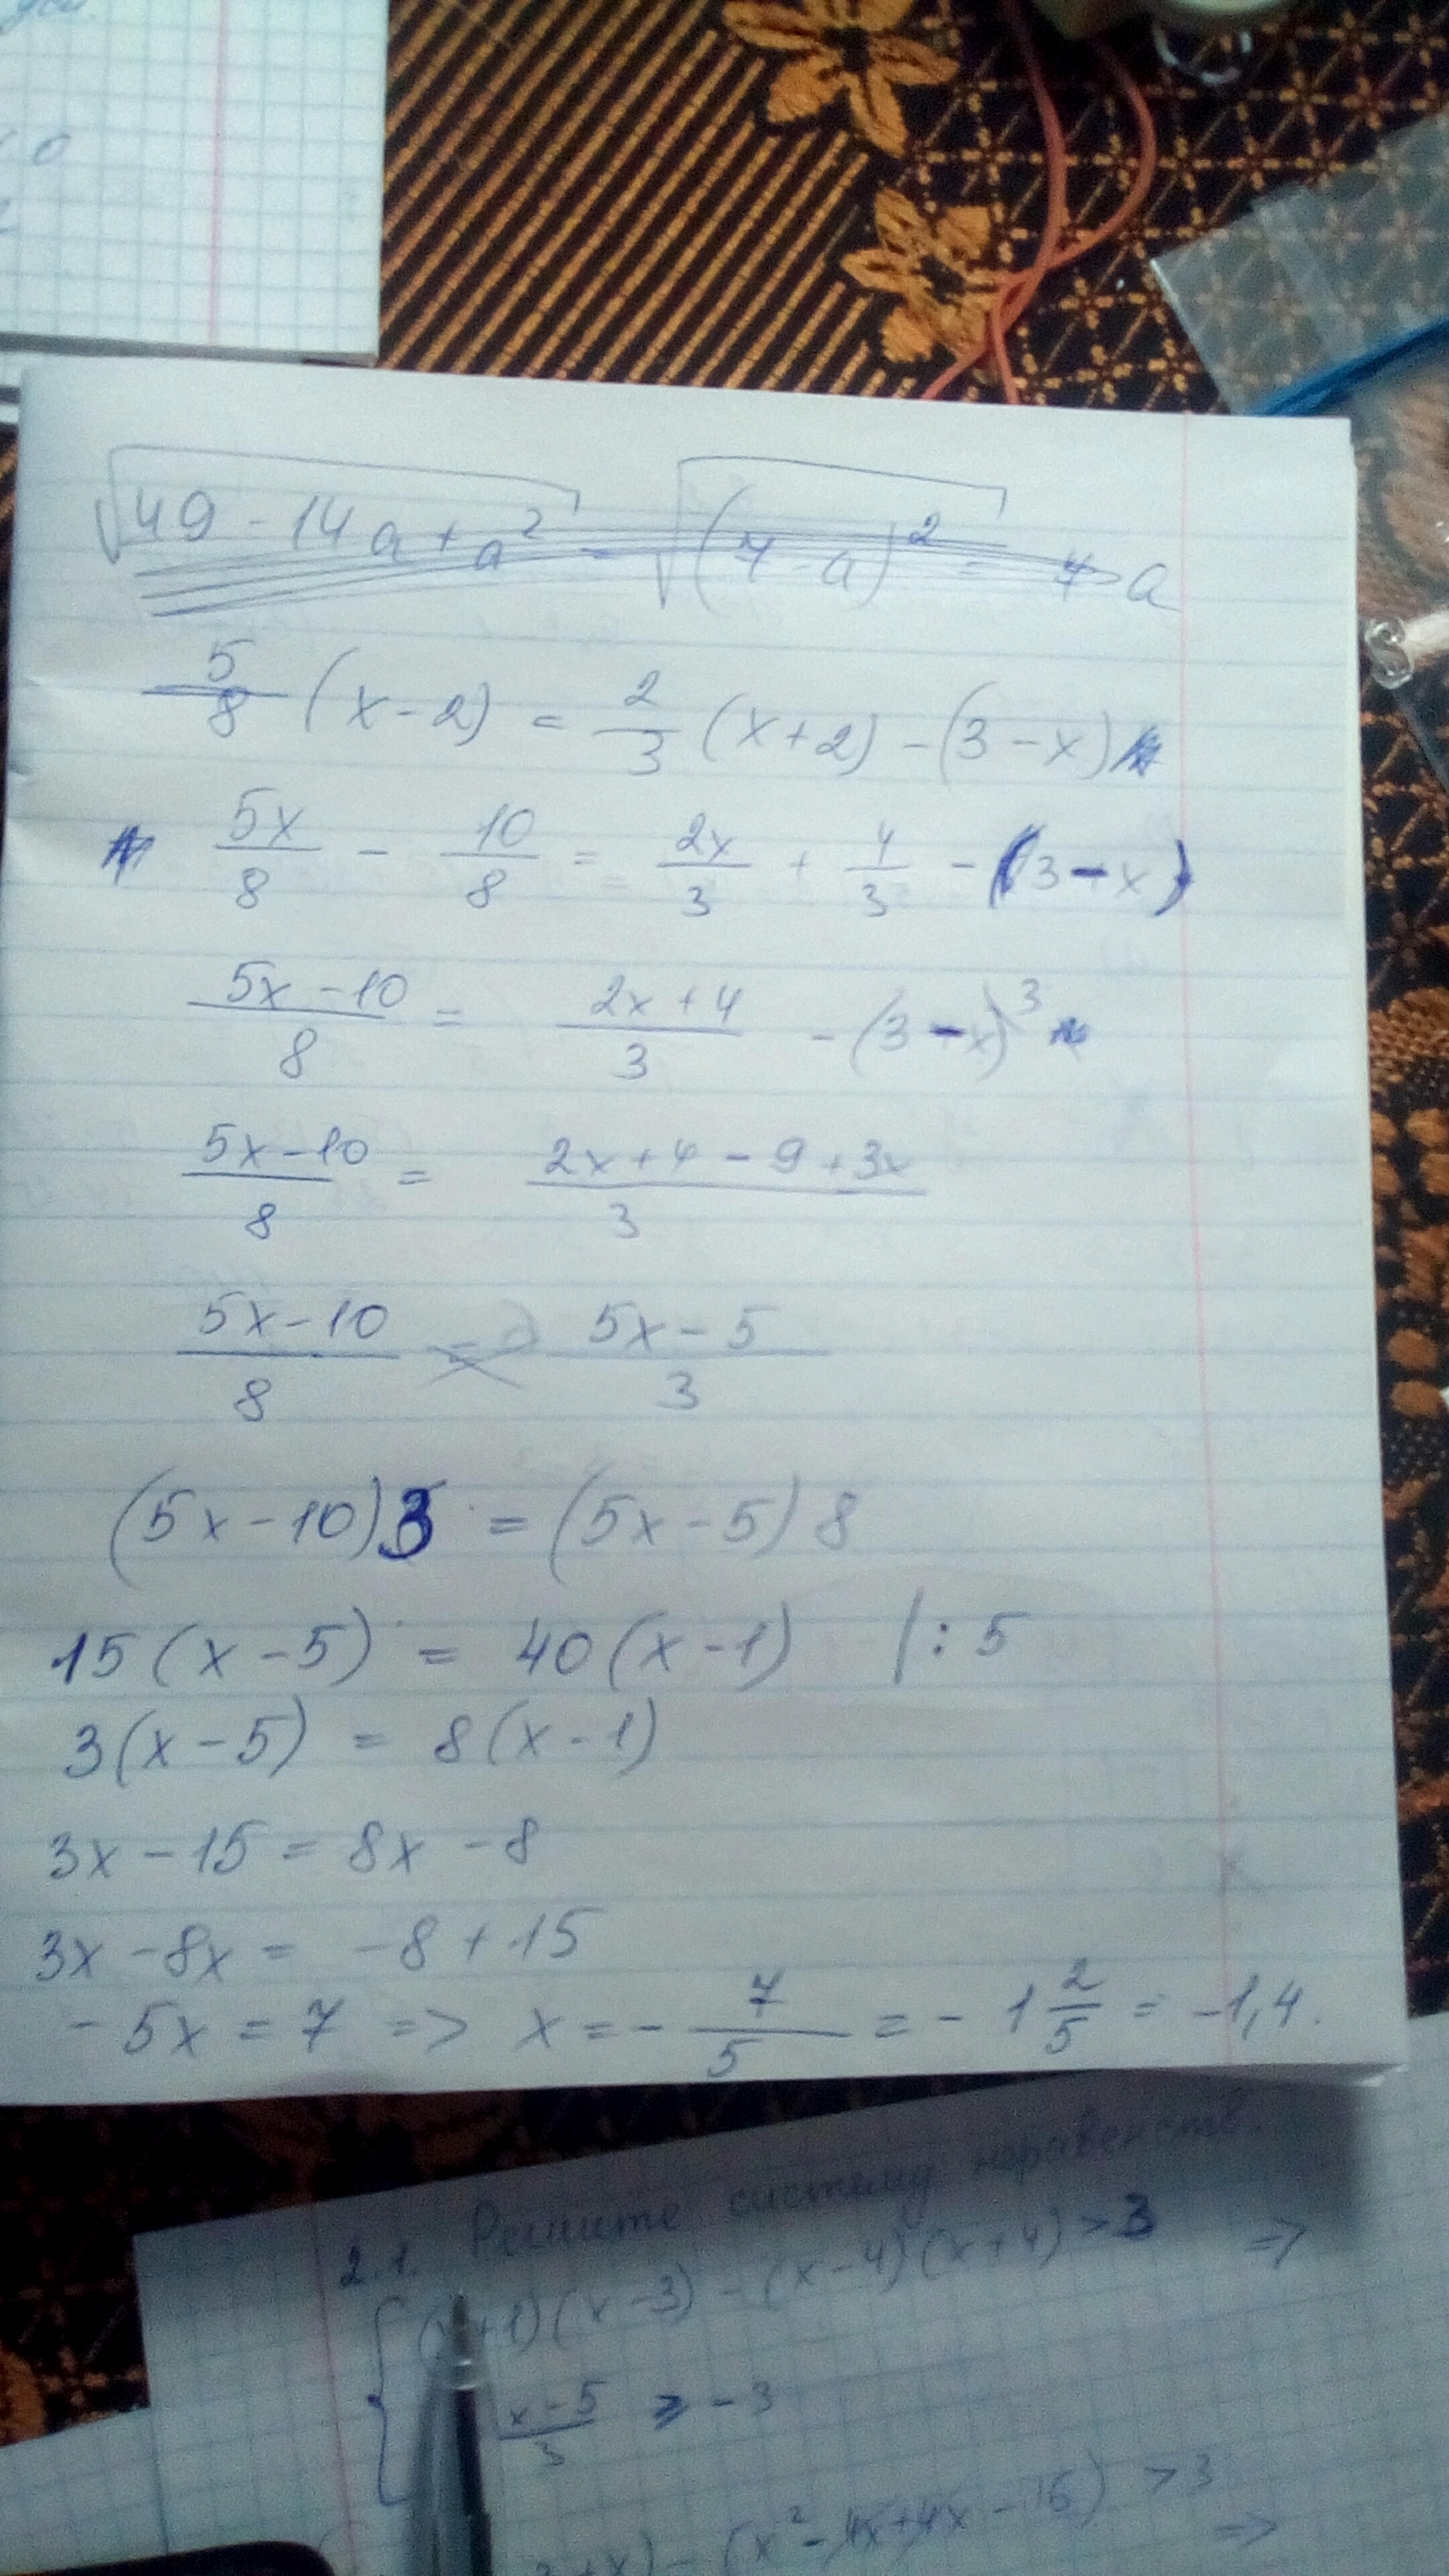 √49 - 14a + a² = √(7-a)² = 7-a
5/8 (x-2) = 2/3 (x+2) - (3-x)
5x/8 - 10/8 = 2x/3 + 4/3 - (3-x)
5x-10/8 = 2x+4/3 - (3-x)³
5x-10/8 = 2x+4-9+3x/3
5x-10/8 = 5x-5/3
(5x-10)3 = (5x-5)8
15(x-5) = 40(x-1) |:5
3(x-5) = 8(x-1)
3x-15 = 8x-8
3x-8x = -8+15
-5x = 7 => x = -7/5 = -1 2/5 = -1,4.
2.1. Решите систему неравенств.
{(x+1)(x-3) - (x-4)(x+4) > 3 =>
x-5/3 ≥ -3
+x) - (x²-4x+4x-16) > 3 =>